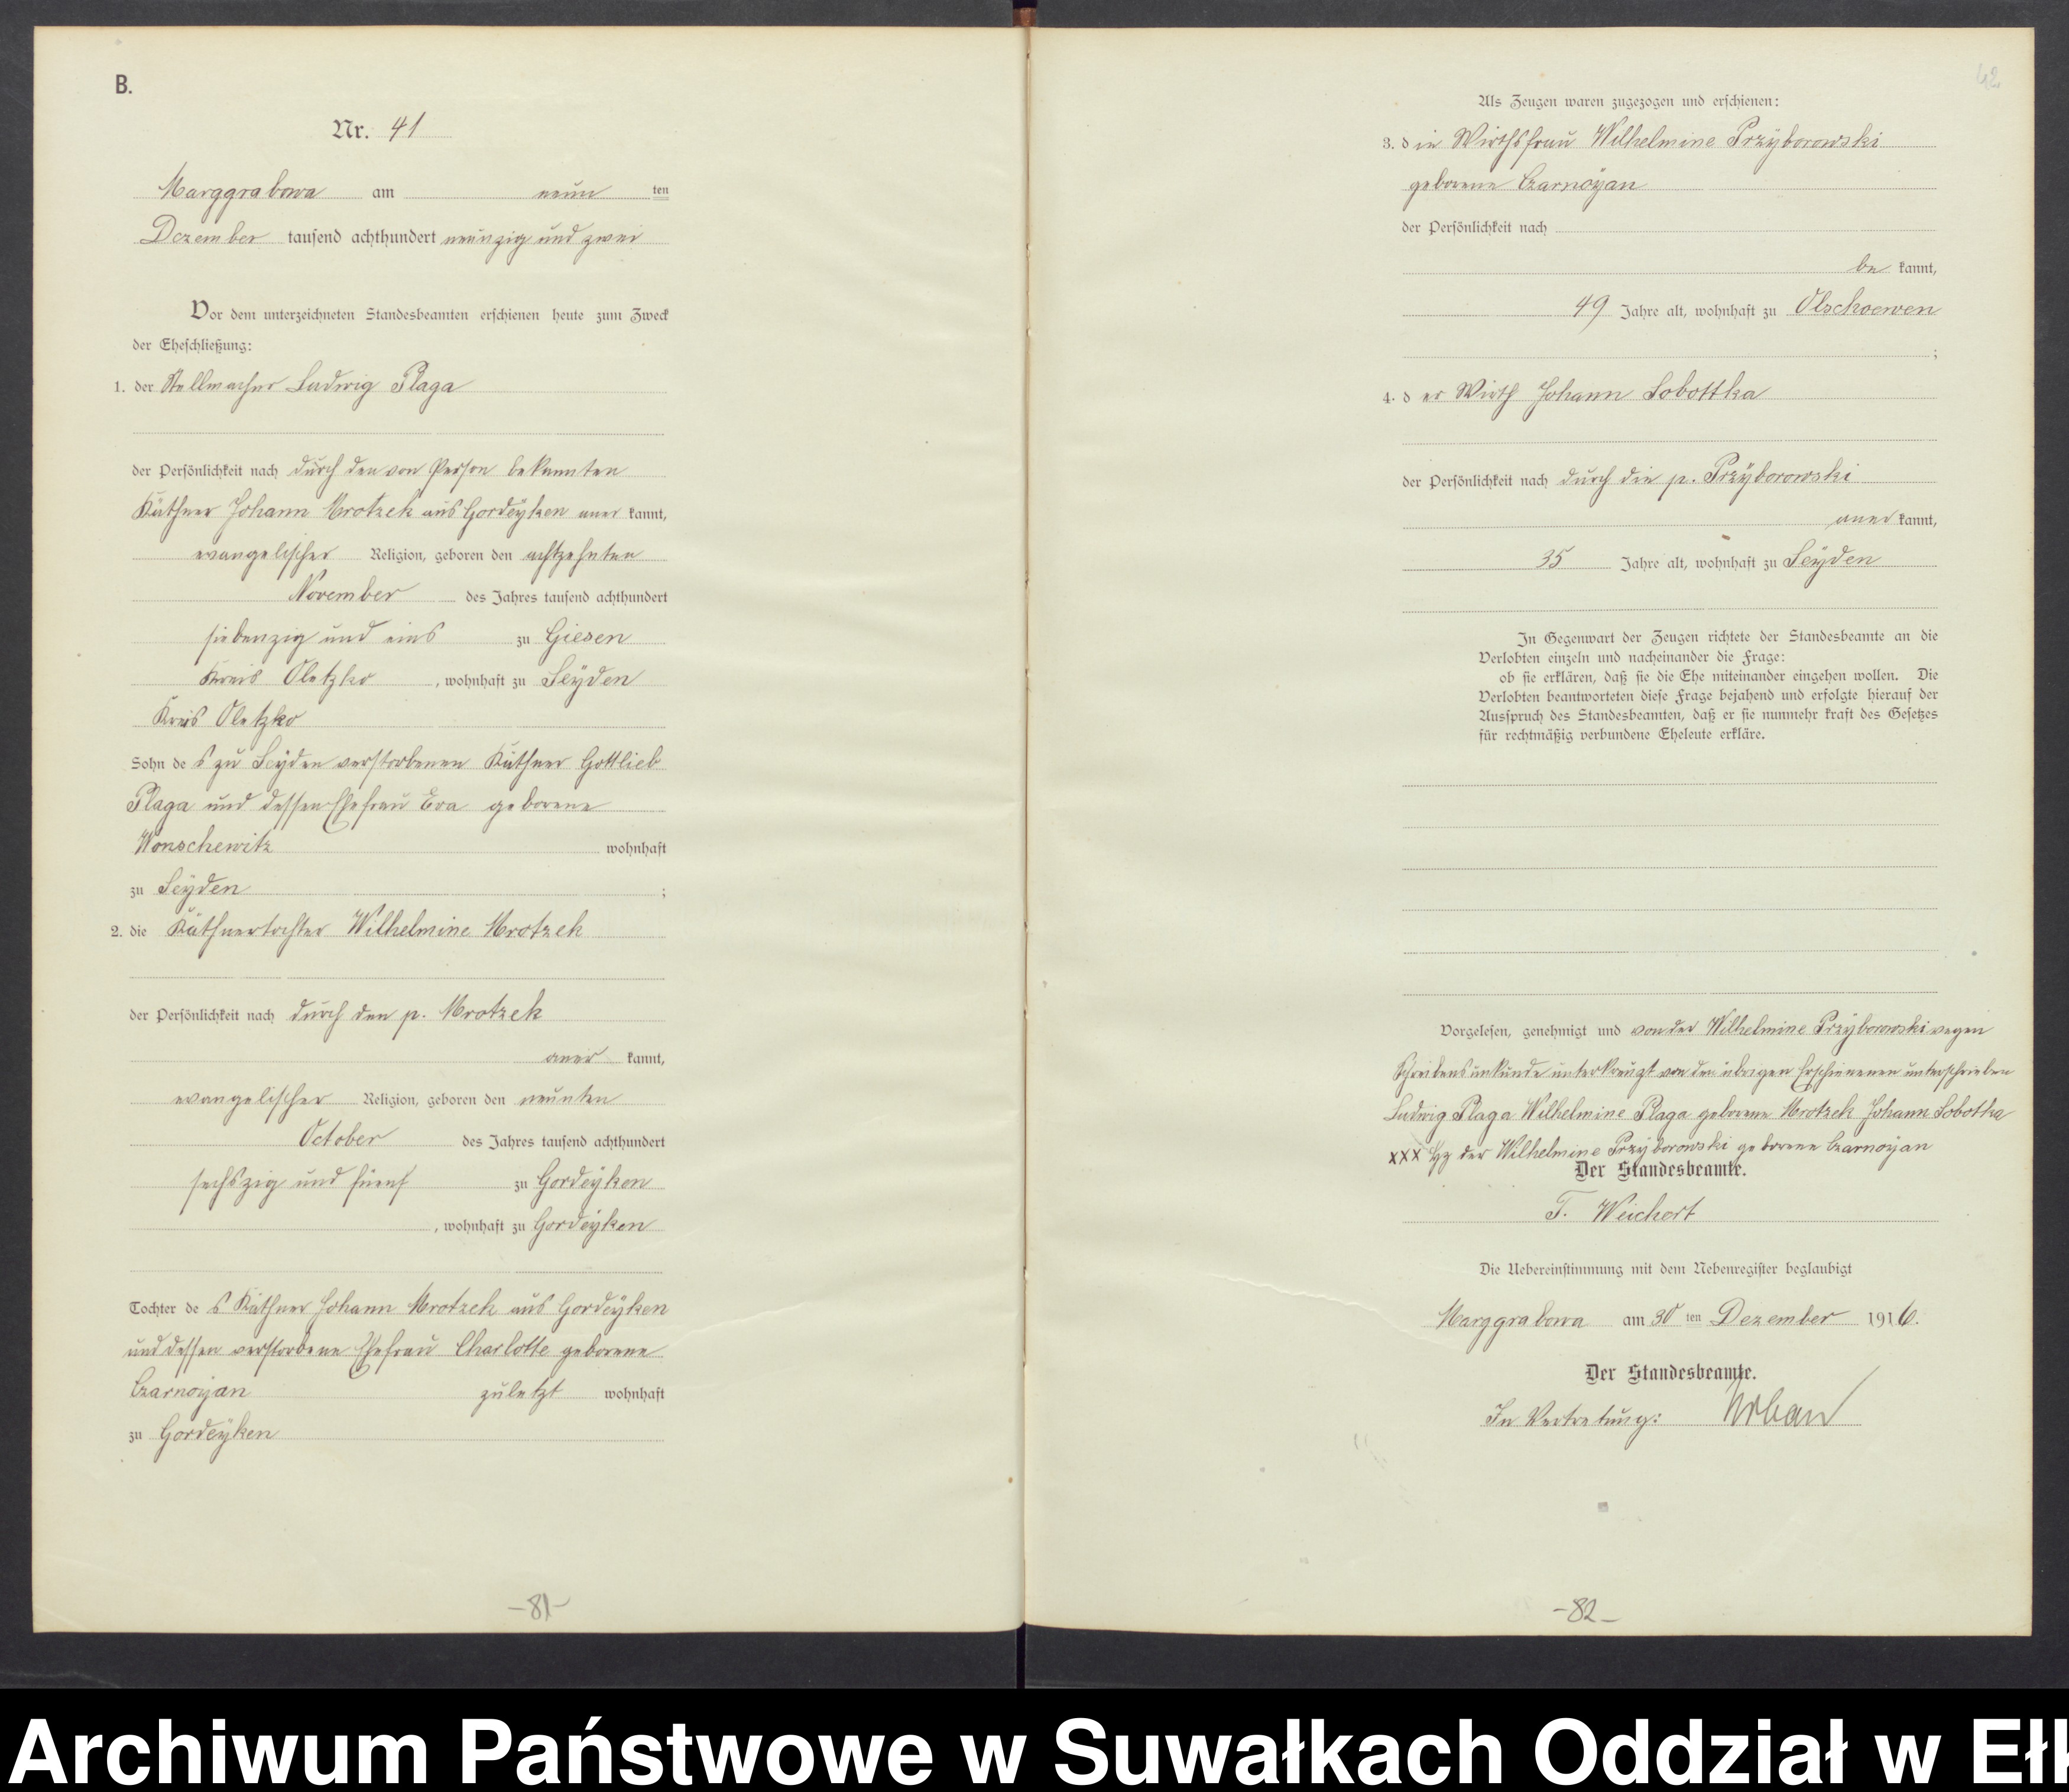 B.
Nr. 41
Marggrabowa am neun ten
Dezember tausend achthundert neunzig und zwei
Vor dem unterzeichneten Standesbeamten erschienen heute zum Zweck
der Eheschließung:
1. der Stellmacher Ludwig Plaga
der Persönlichkeit nach durch den von Person bekannten
Käthner Johann Mrotzek aus Gordeÿken aner kannt,
evangelischer Religion, geboren den achtzehnten
November des Jahres tausend achthundert
siebenzig und eins zu Giesen
Kreis Oletzko, wohnhaft zu Seÿden
Kreis Oletzko
Sohn des zu Seÿden verstorbenen Käthner Gottlieb
Plaga und dessen Ehefrau Eva geborene
Wonschewitz wohnhaft
zu Seÿden ;
2. die Käthnertochter Wilhelmine Mrotzek
der Persönlichkeit nach durch den p. Mrotzek
aner kannt,
evangelischer Religion, geboren den neunten
October des Jahres tausend achthundert
sechszig und fuenf zu Gordeÿken
, wohnhaft zu Gordeÿken
Tochter des Käthner Johann Mrotzek aus Gordeÿken
und dessen verstorbene Ehefrau Charlotte geborene
Czarnoÿan zuletzt wohnhaft
zu Gordeÿken
-81-
42
Als Zeugen waren zugezogen und erschienen:
3. die Wirthsfrau Wilhelmine Przÿborowski
geborene Czarnoÿan
der Persönlichkeit nach
be kannt,
49 Jahre alt, wohnhaft zu Olschoewen
;
4. der Wirth Johann Sobottka
der Persönlichkeit nach durch die p. Przÿborowski
aner kannt,
35 Jahre alt, wohnhaft zu Seÿden
In Gegenwart der Zeugen richtete der Standesbeamte an die
Verlobten einzeln und nacheinander die Frage:
ob sie erklären, daß sie die Ehe miteinander eingehen wollen. Die
Verlobten beantworteten diese Frage bejahend und erfolgte hierauf der
Ausspruch des Standesbeamten, daß er sie nunmehr kraft des Gesetzes
für rechtmäßig verbundene Eheleute erkläre.
Vorgelesen, genehmigt und von der Wilhelmine Przÿborowski wegen
Schreibensunkunde unterkreuzt von den übrigen Erschienenen unterschrieben
Ludwig Plaga Wilhelmine Plaga geborene Mrotzek Johann Sobotka
XXX Hz der Wilhelmine Przÿborowski geborene Czarnoÿan
Der Standesbeamte.
T. Weichert
Die Uebereinstimmung mit dem Nebenregister beglaubigt
Marggrabowa am 30 ten Dezember 1916.
Der Standesbeamte.
In Vertretung: Urban
-82-
Archiwum Państwowe w Suwałkach Oddział w Eł